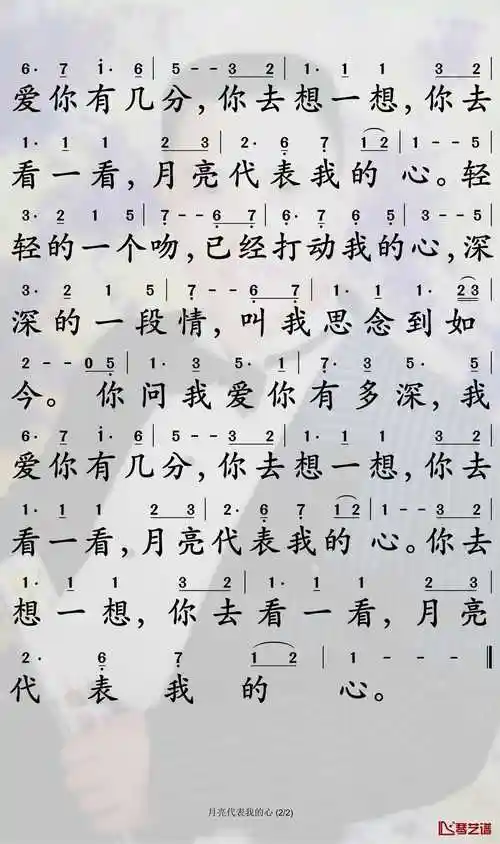 6· 7 i· 6 | 5 - - 3 2 | 1· 1 1 3 2 |
爱你有几分，你去想一想，你去
1· 1 1 2 3 | 2· 6 7 1 2 | 1 - - 5 |
看一看，月亮代表我的心。轻
3· 2 1 5 | 7 - - 6 7 | 6· 7 6 5 | 3 - - 5 |
轻的一个吻，已经打动我的心，深
3· 2 1 5 | 7 - - 6 7 | 1· 1 1 2 3 |
深的一段情，叫我思念到如
2 - - 0 5 | 1· 3 5· 1 | 7· 3 5· 5 |
今。你问我爱你有多深，我
6· 7 i· 6 | 5 - - 3 2 | 1· 1 1 3 2 |
爱你有几分，你去想一想，你去
1· 1 1 2 3 | 2· 6 7 1 2 | 1 - - 3 2 |
看一看，月亮代表我的心。你去
1· 1 1 3 2 | 1· 1 1 2 3 |
想一想，你去看一看，月亮
2· 6 7 1 2 | 1 - - ‖
代表我的心。
月亮代表我的心 (2/2)
琴艺谱